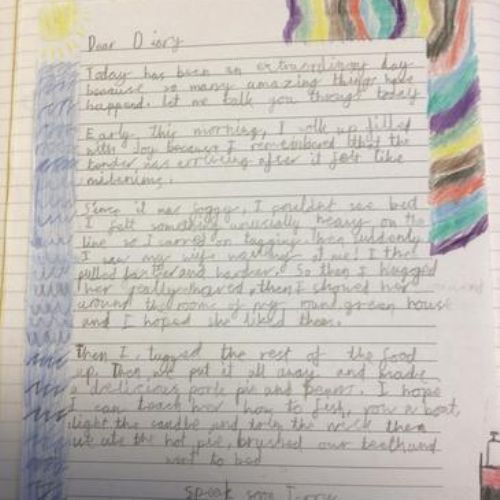 Dear Diary
Today has been an extraordinary day
because so many amazing things have
happend. let me talk you through today
Early this morning, I wolk up filled
with Joy because I remembered that the
tender was arriving after it felt like
Since it was foggy, I couldnt see but
I felt something unusially heavy on the
line so I carred on tugging then suddonly
I saw my wife waving at me! I the
pulled faster and harder. So then I hugged
her really hared, then I showed her
around the rooms of my round green house
and I hoped she liked them.
Then I tugged the rest of the food
up. Then we put it all away and made
a delicious pork pie and beans. I hope
I can teach her how to fish, row a boat,
light the candle and trim the wick then
we ate the hot pie, brushed our teeth and
went to bed
speak soon